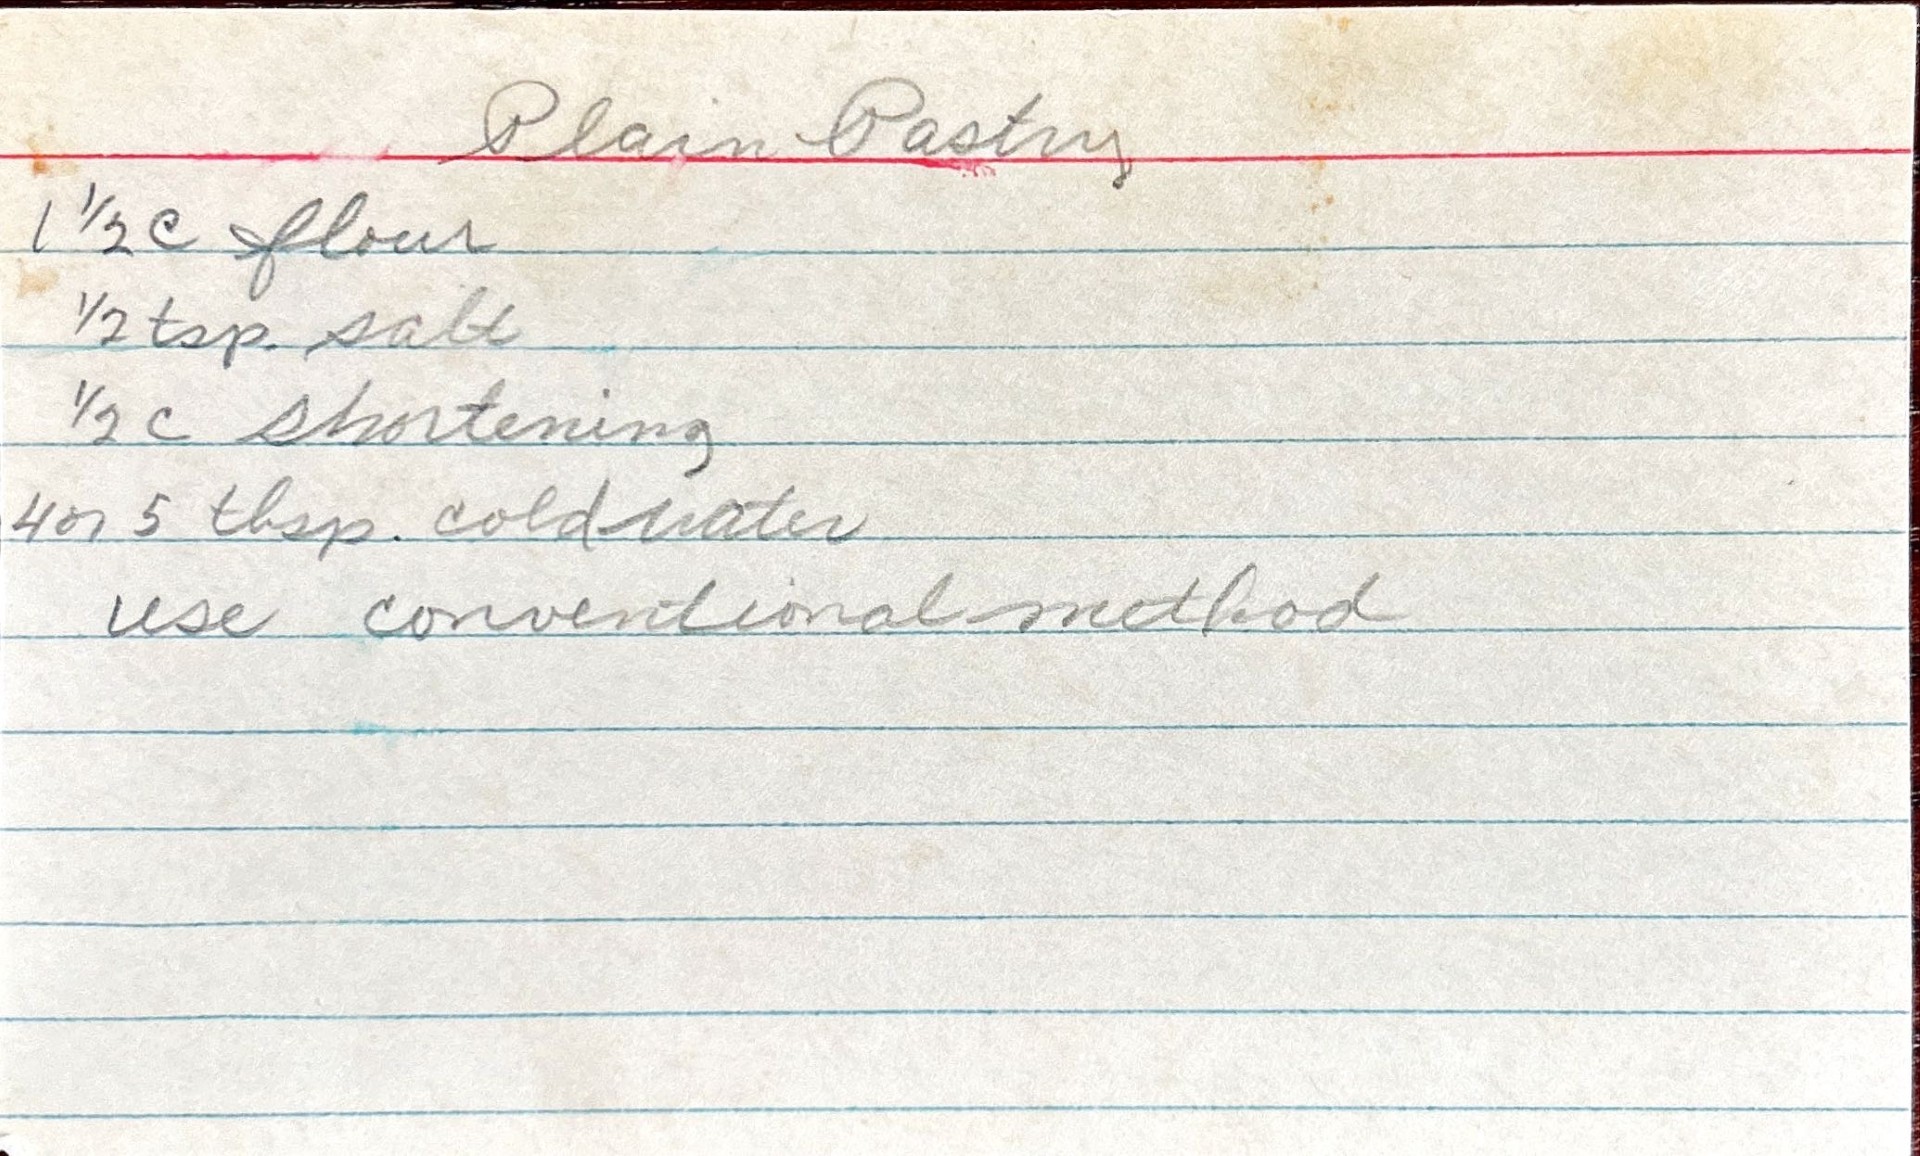 Plain Pastry
1 1/2 c flour
1/2 tsp. salt
1/2 c shortening
4 or 5 tbsp. cold water
use conventional method